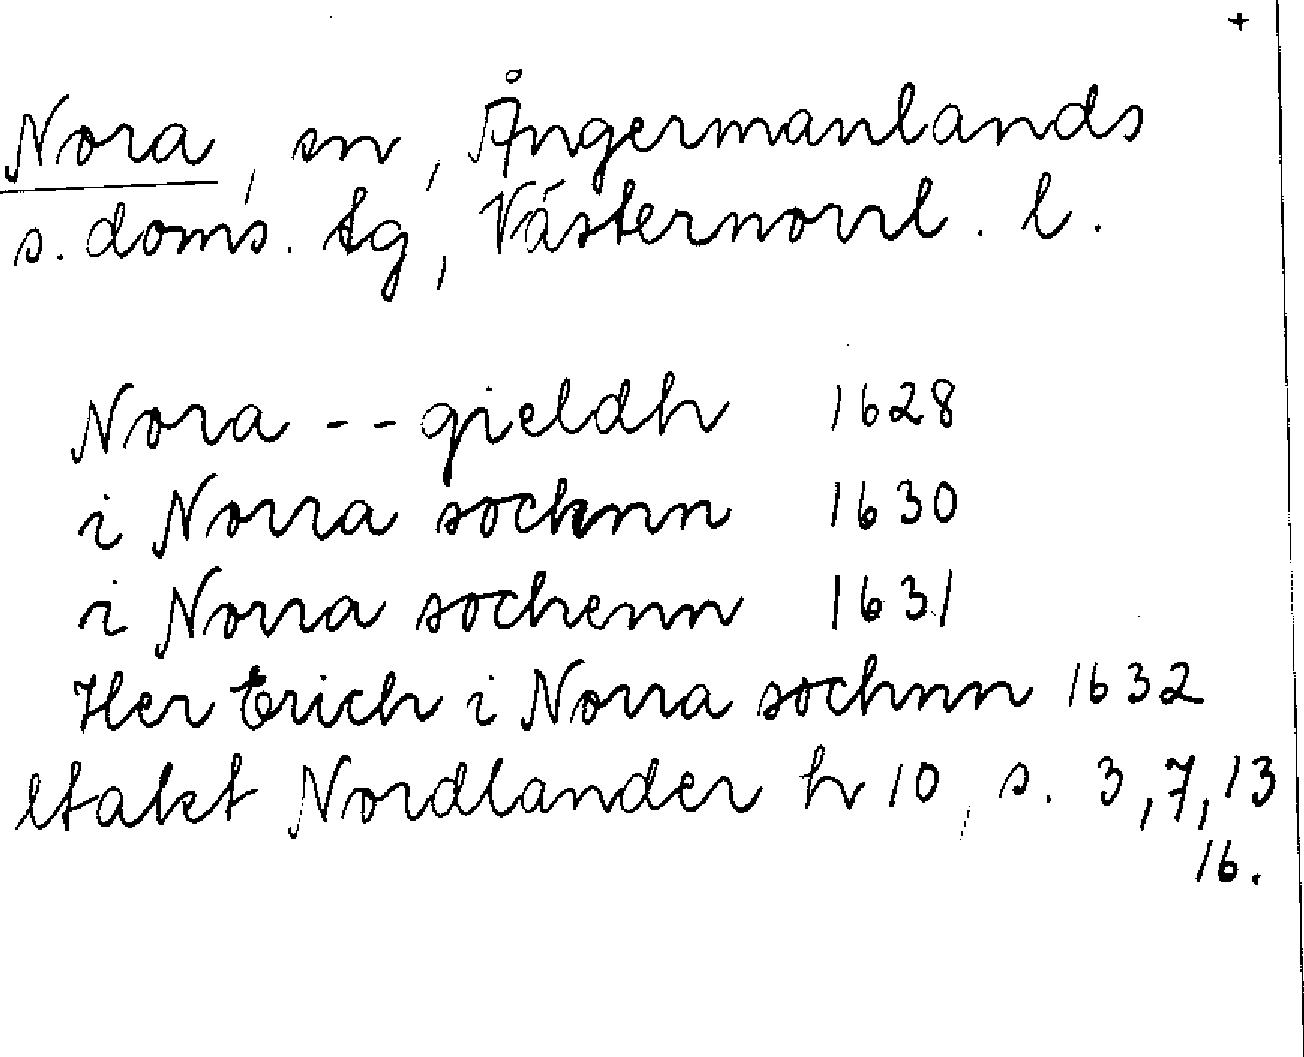 +
Nora, sn, Ångermanlands
s. doms. tg, Västernorrl. l.
Nora -- gieldh 1628
i Norra socknn 1630
i Norra sochenn 1631
Her Erich i Norra sochnn 1632
Nordlander h 10, s. 3, 7, 13
16.